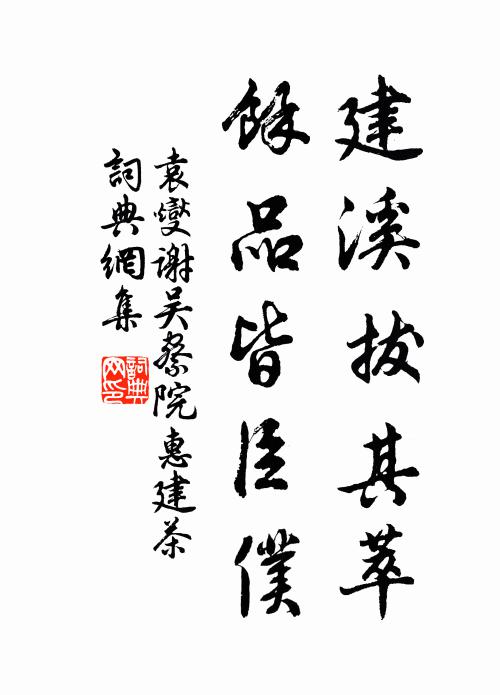 建溪拔其萃
餘品皆臣僕
袁燮謝吴察院惠建茶
詞典網集
詞典
网印